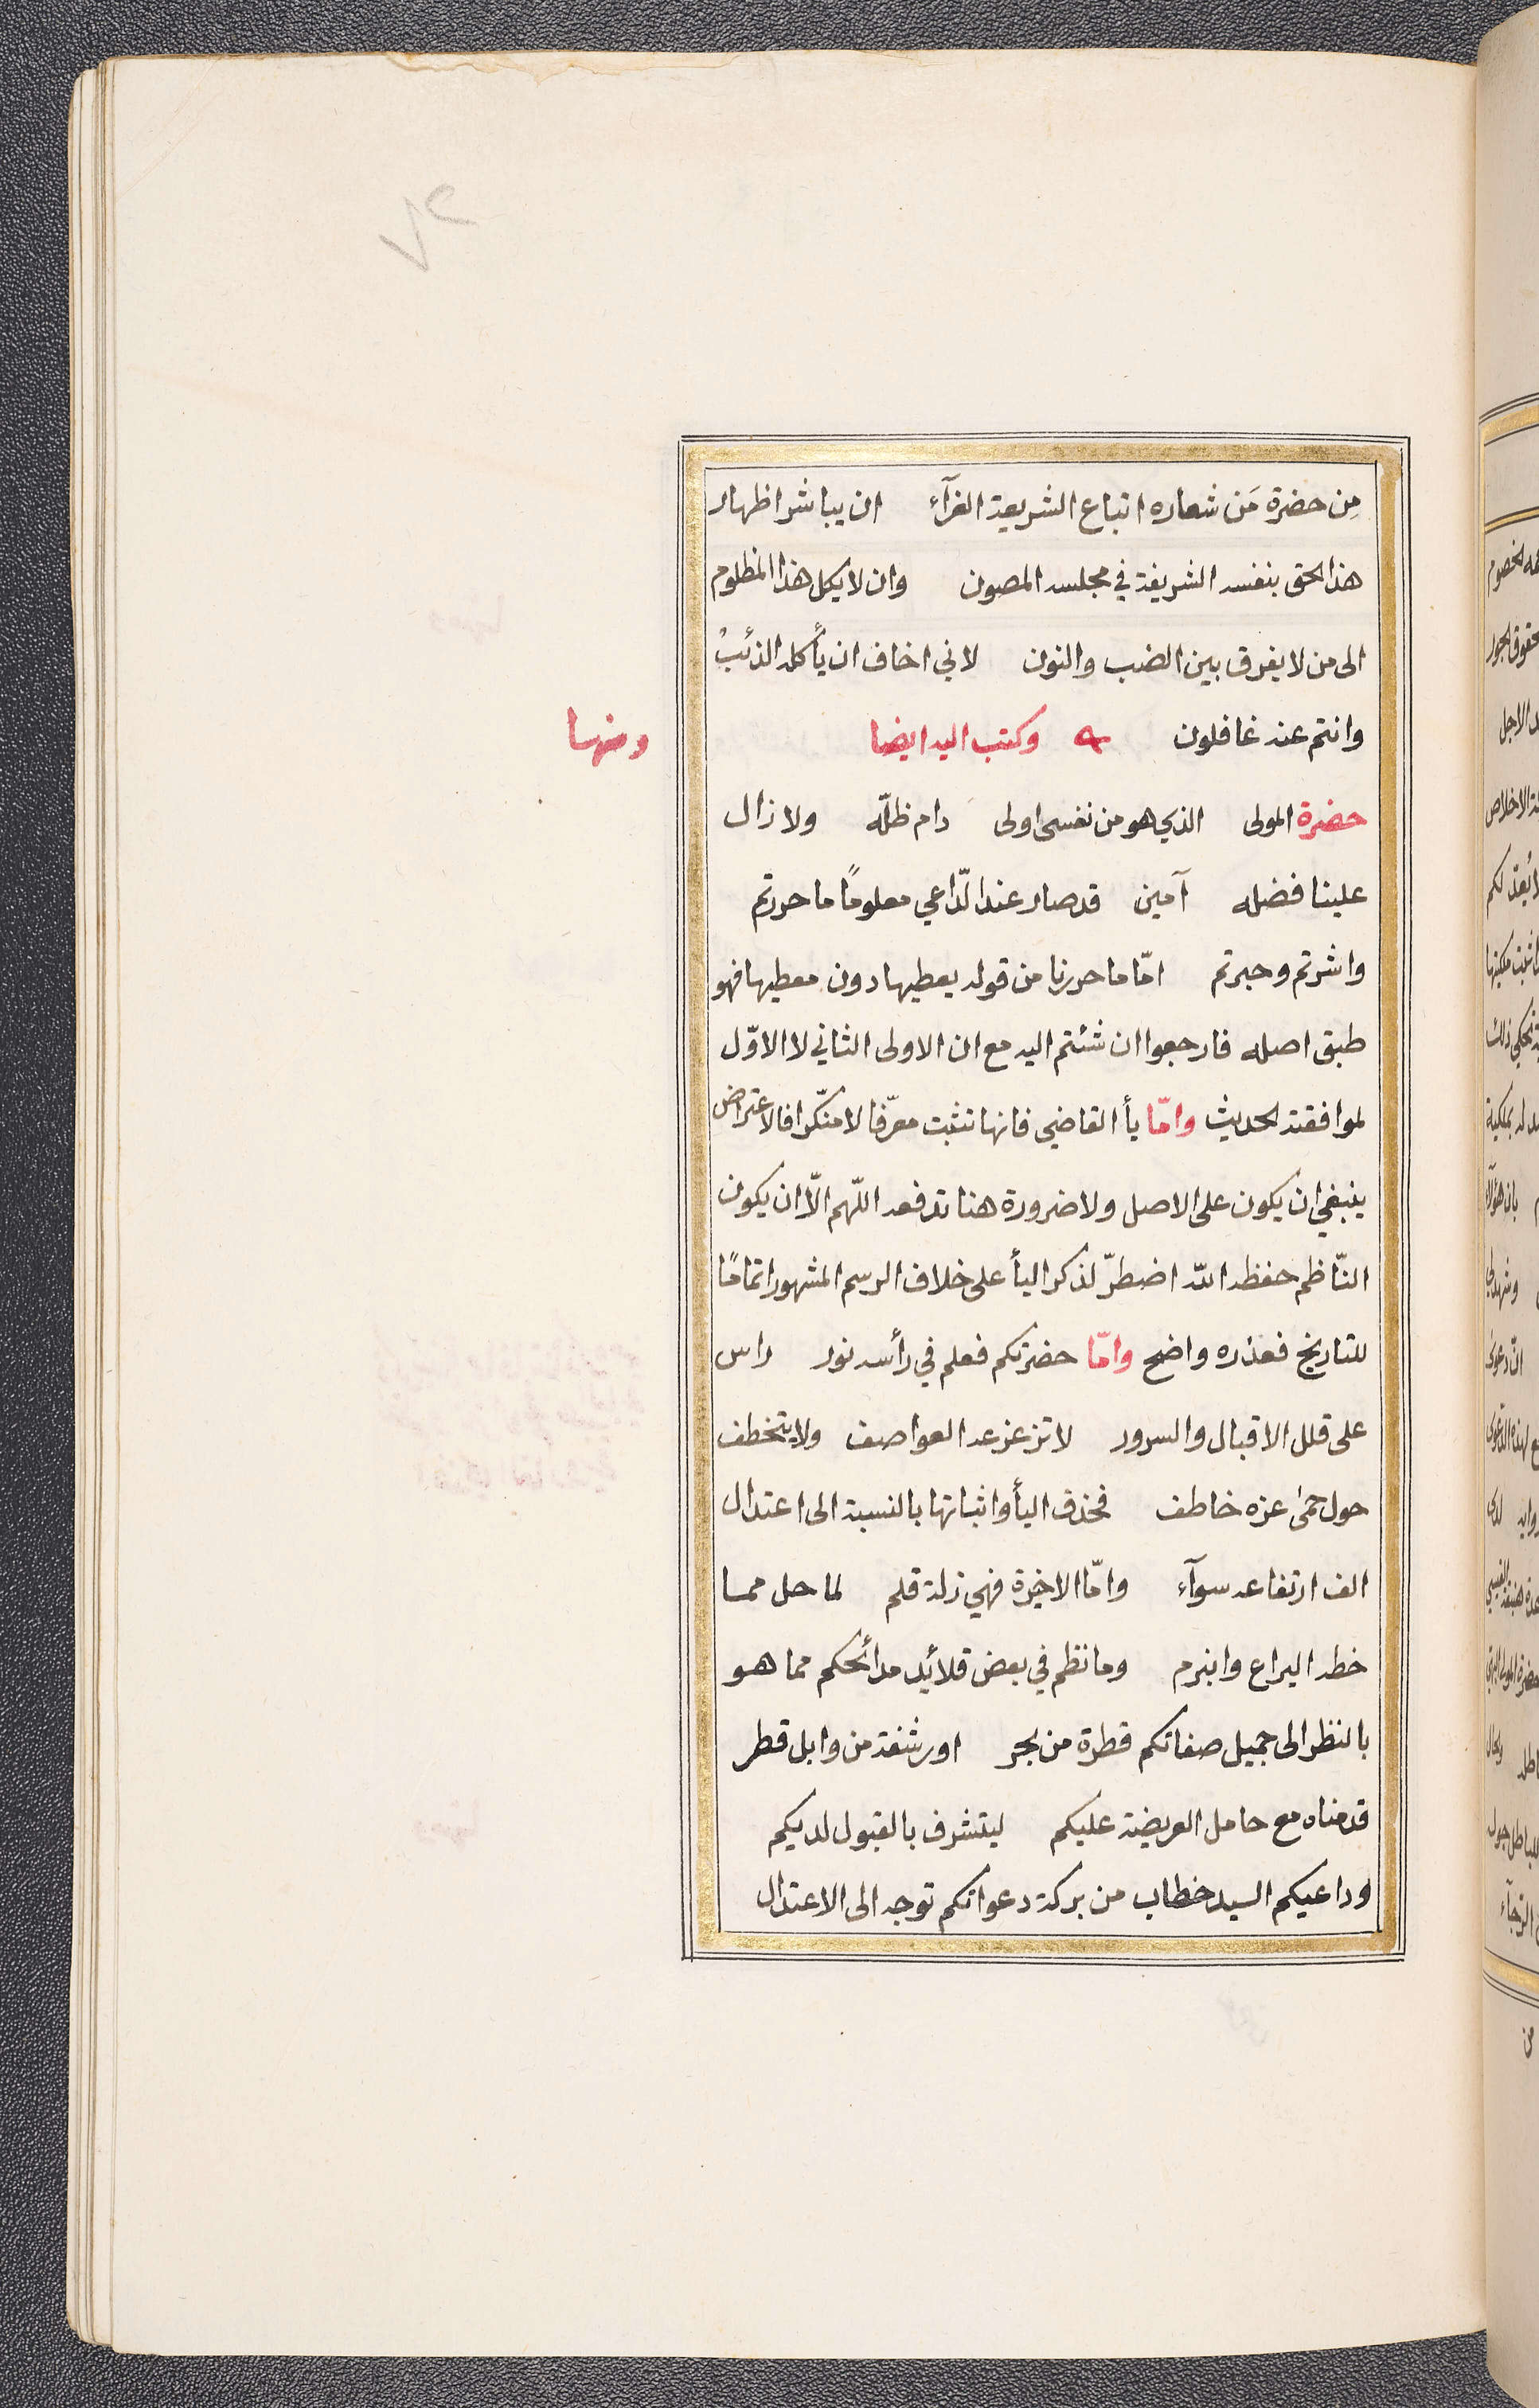 ٢٧
مِن حضرة مَن شعاره اتباع الشريعة الغرآء ان يباشر اظهار
هذا الحق بنفسه الشريفة في مجلسه المصون وان لا يكل هذا المظلوم
الى من لا يفرق بين الضب والنون لاني اخاف ان يأكله الذئبْ
وانتم عنه غافلون وكتب اليه ايضا
ومنها
حضرة المولى الذي هو من نفسى اولى دام ظلّه ولا زال
علينا فضله آمين قد صار عند الدّاعي معلومًا ما حررتم
واشرتم وحبرتم امّا ما حررنا من قوله يعطيها دون معطيها فهو
طبق اصله فارجعوا ان شئتم اليه مع ان الاولى الثاني لا الاوّل
لموافقته الحديث وامّا يأ القاضي فانها تثبت معرّفا لا منكّرا فالاعتراض
ينبغي ان يكون على الاصل ولا ضرورة هنا تدفعه اللّهم الّا ان يكون
النّاظم حفظه اللّه اضطرّ لذكر اليأ على خلاف الرسم المشهور اتمامًا
للتاريخ فعذره واضح وامّا حضرتكم فعلم في رأسه نور راس
على قلل الاقبال والسرور لا تزعزعه العواصف ولا يتخطف
حول حمىٰ عزه خاطف فحذف اليأ واثباتها بالنسبة الى اعتدال
الف ارتفاعه سوآء وامّا الاخيرة فهي زلة قلم لما حل مما
خطه اليراع وابنرم وما نظم في بعض قلائد مدائحكم مما هو
بالنظر الى جميل صفاتكم قطرة من بحر او رشفة من وابل قطر
قدمناه مع حامل العريضة عليكم ليتشرف بالقبول لديكم
وداعيكم السيد خطاب من بركة دعواتكم توجه الى الاعتدال